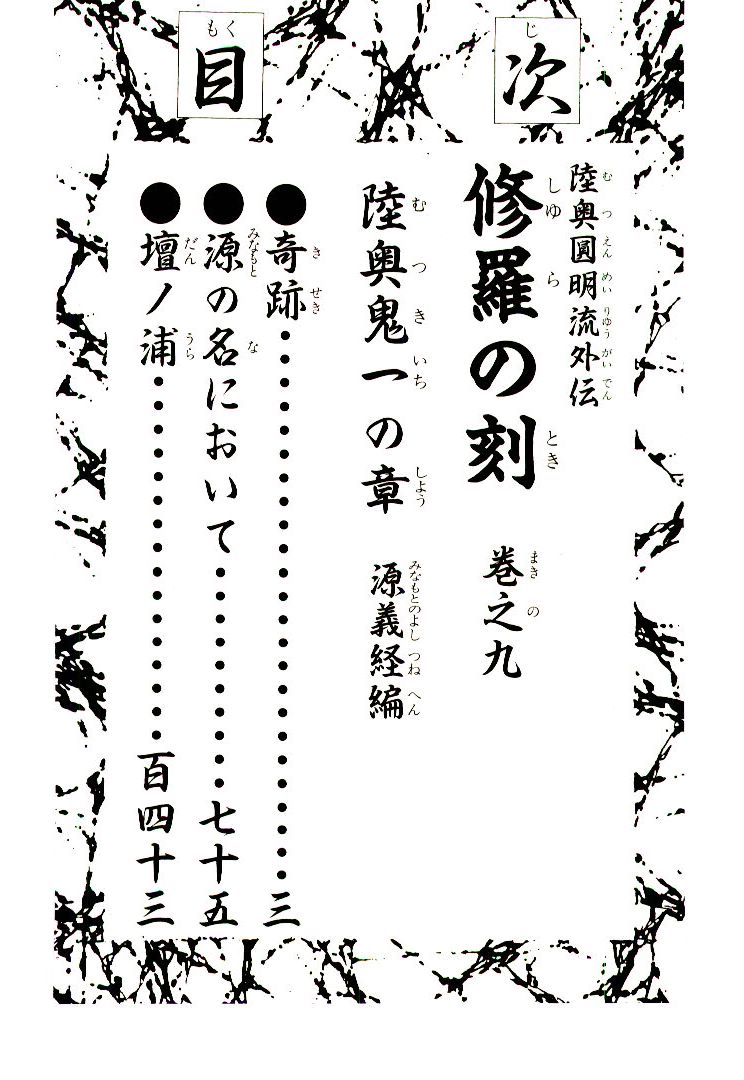 目次
陸奥圓明流外伝
修羅の刻
巻之九
陸奥鬼一の章 源義経編
●奇跡‥‥‥‥‥‥‥‥‥‥‥‥三
●源の名において‥‥‥‥‥七十五
●壇ノ浦‥‥‥‥‥‥‥‥百四十三